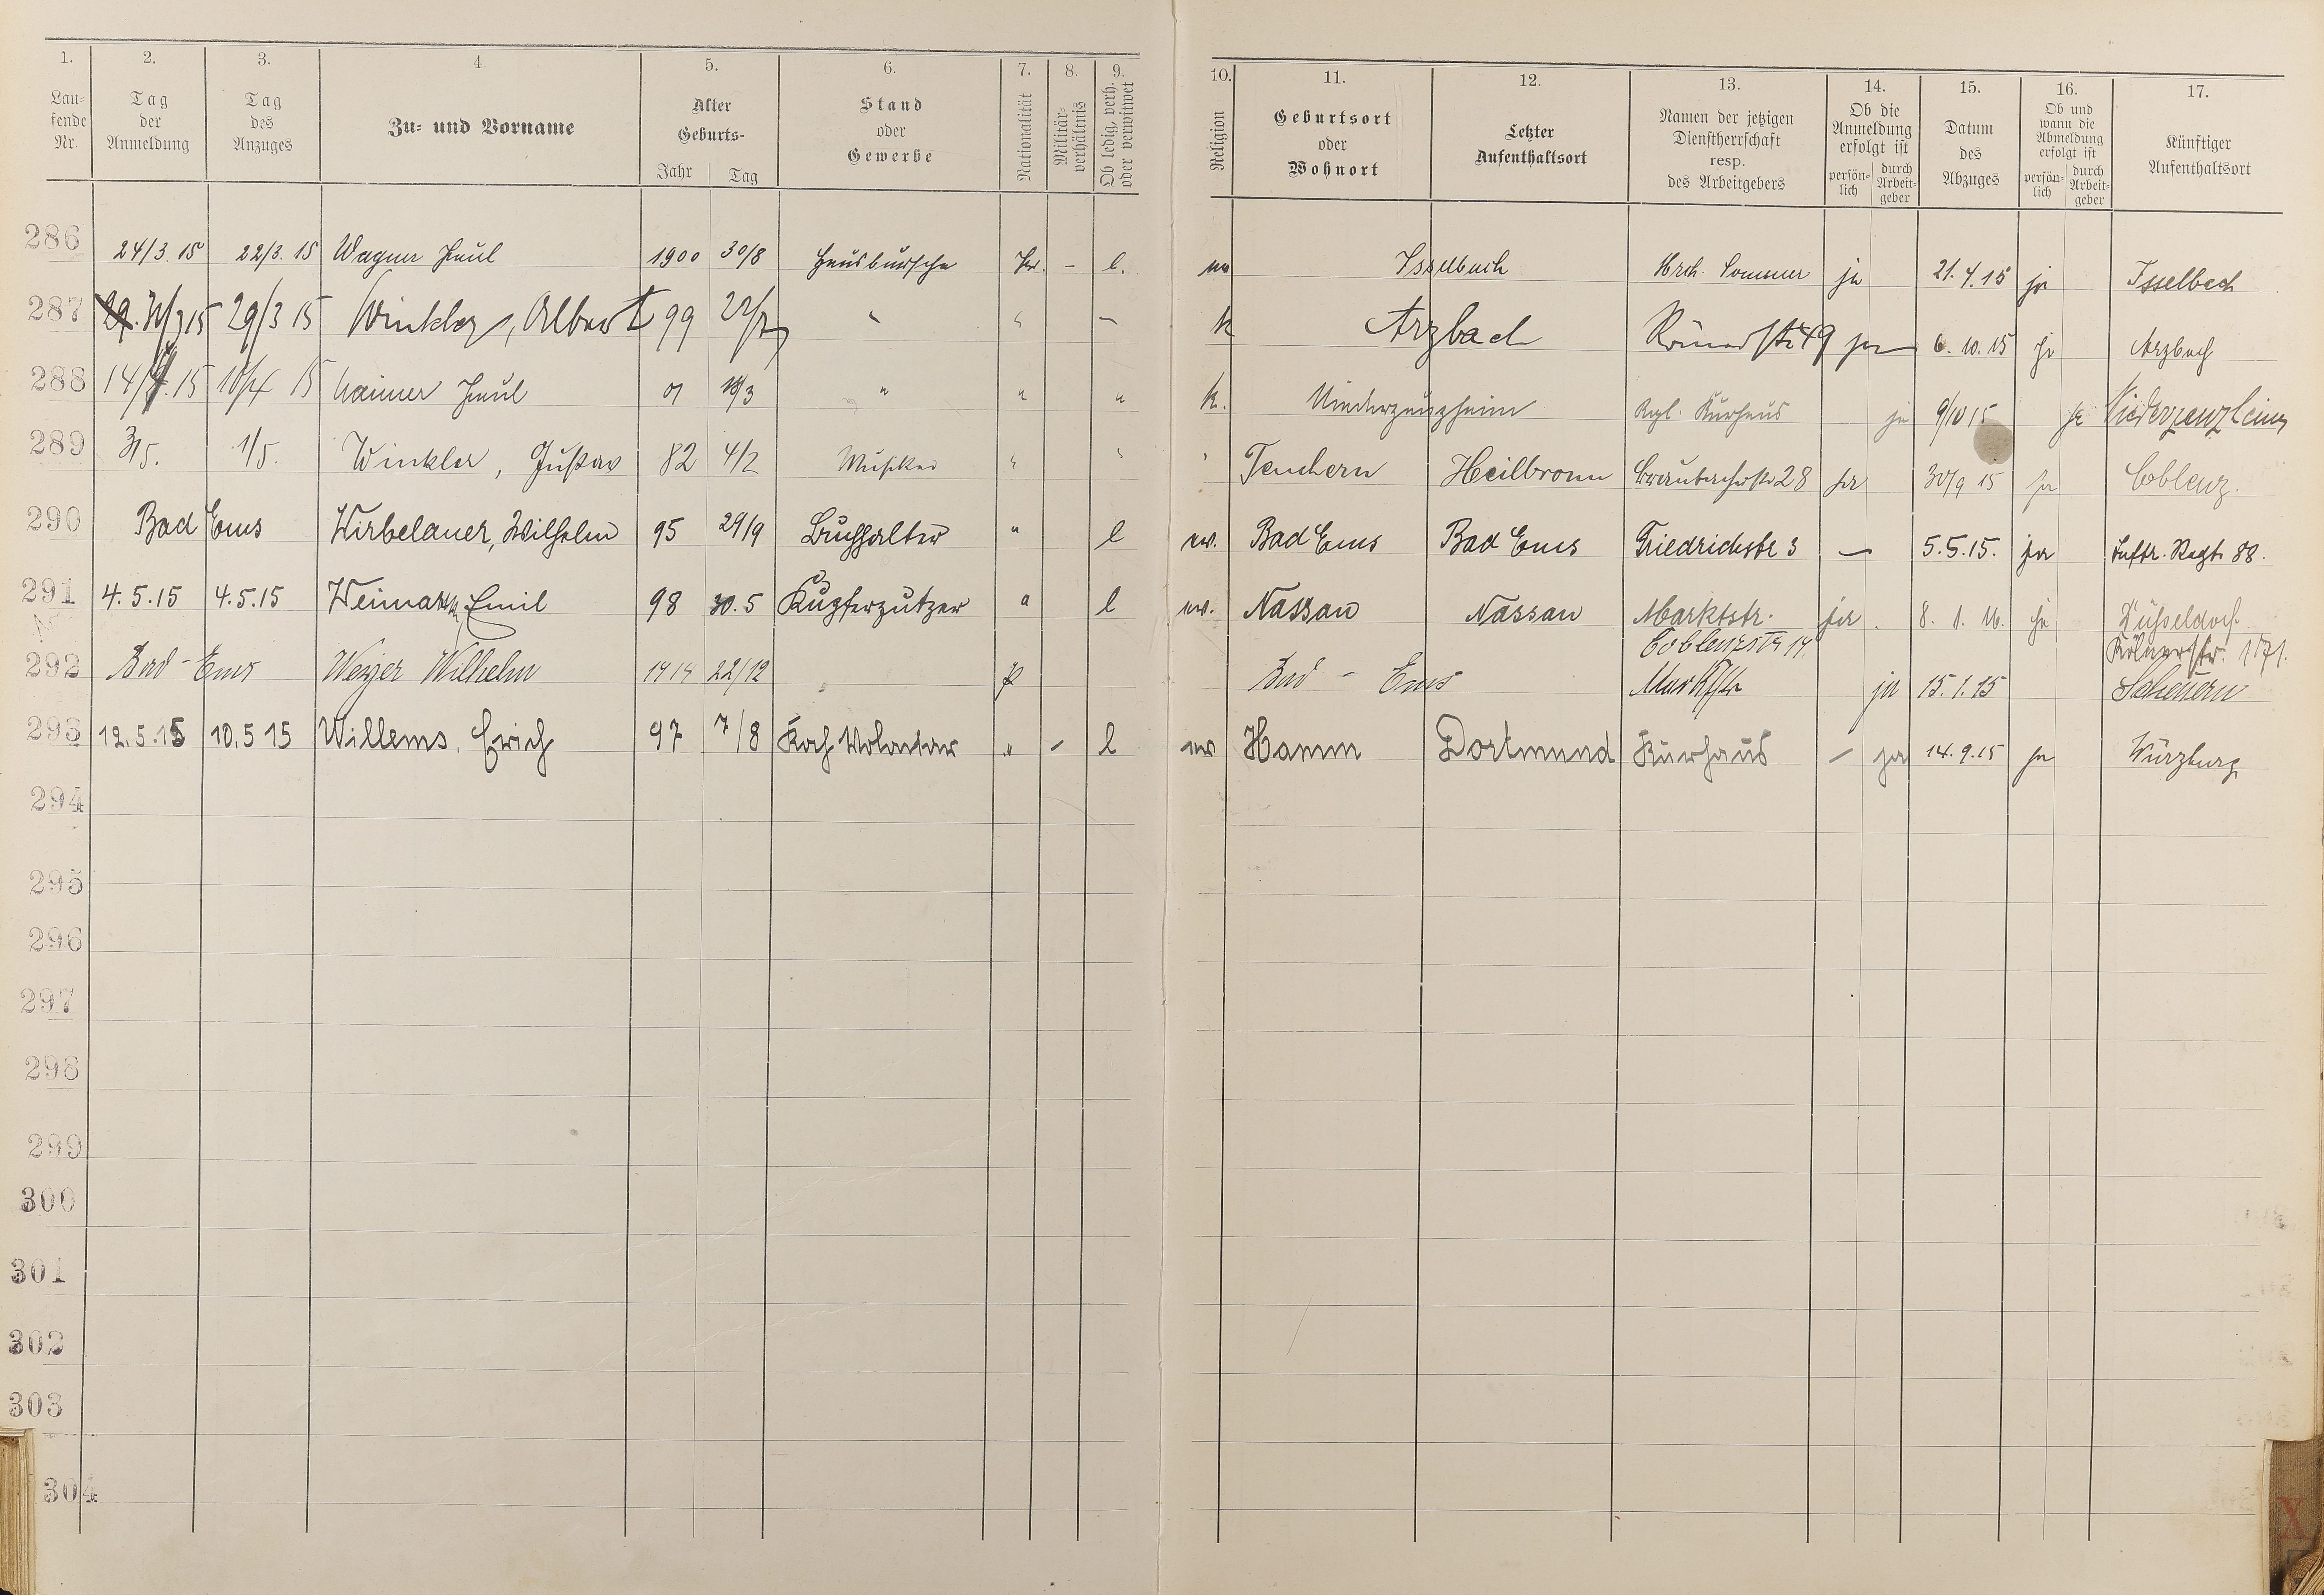 1. 2. 3. 4. 5. 6. 7. 8. 9. 10. 11. 12. 13. 14. 15. 16. 17.
Lau-
fende
Nr.
Tag
der
Anmeldung
Tag
des
Anzuges
Zu- und Vorname
Alter
Geburts-
Jahr Tag
Stand
oder
Gewerbe
Nationalität
Militär-
verhältnis
Ob ledig, verh.
oder verwitwet
Religion
Geburtsort
oder
Wohnort
Letzter
Aufenthaltsort
Namen der jetzigen
Dienstherrschaft
resp.
des Arbeitgebers
Ob die
Anmeldung
erfolgt ist
persön-
lich
durch
Arbeit-
geber
Datum
des
Abzuges
Ob und
wann die
Abmeldung
erfolgt ist
persön-
lich
durch
Arbeit-
geber
Künftiger
Aufenthaltsort
286 24/3. 15 22/3. 15 Wagner Paul 1900 30/8 Hausbursche Pr. - l. ev Isselbach Hch. Sommer ja 21.4.15 ja Isselbach
287 29/3 15 Winkler, Albert 99 " " — k Arzbach Römerstr 49 ja 6.10.15 ja Arzbach
288 14/4. 15 10/4 15 Paul 01 " " " k. Niederzeuzheim Kgl. Kurhaus ja 9/10 15 ja Niederzeuzheim
289 3/5. 1/5. Winkler, Gustav 82 4/2 Musiker " " " Teuchern Heilbronn Braubacherstr 28 ja 30/9 15 ja Coblenz.
290 Bad Ems Wirbelauer, Wilhelm 95 29/9 Buchhalter " l ev. Bad Ems Bad Ems Friedrichstr 3 — 5.5.15. ja Inftr. Regt. 88.
291 4.5.15 4.5.15 Emil 98 30.5 Kupferputzer " l ev. Nassau Nassau Marktstr. ja. 8. 1. 16. ja Düsseldorf
Coblenzstr 14. Kölnerstr. 171.
292 Bad-Ems Weyer Wilhelm 22/12 P Bad - Ems Marktstr ja 15.1.15 Scheuern
293 12.5.15 10.5 15 Willems, Erich 97 7/8 Koch Volontär " - l ev Hamm Dortmund Kurhaus - ja 14.9.15 ja Würzburg
294
295
296
297
298
299
300
301
302
303
304
X